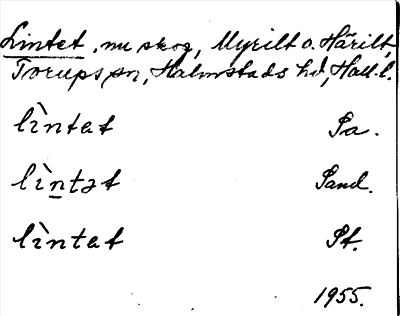 Lintet, nu skog, Myrilt o. Härilt,
Torups sn, Halmstads hd, Hall. l.
lìntat Sa.
lìn̲tət Sand.
lìntat St.
1955.